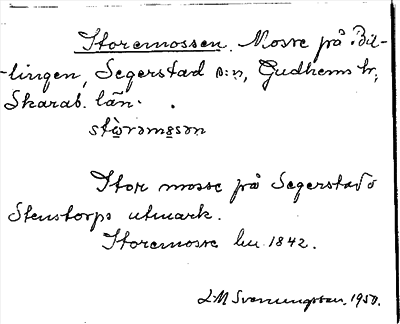 Storemossen. Mosse på Bil-
-lingen, Segerstad s:n, Gudhems hd,
Skarab. län.
stòrəmɷsən
Stor mosse på Segerstads
Stenstorps utmark.
Storemosse lm 1842.
L M Svenungsson. 1950.